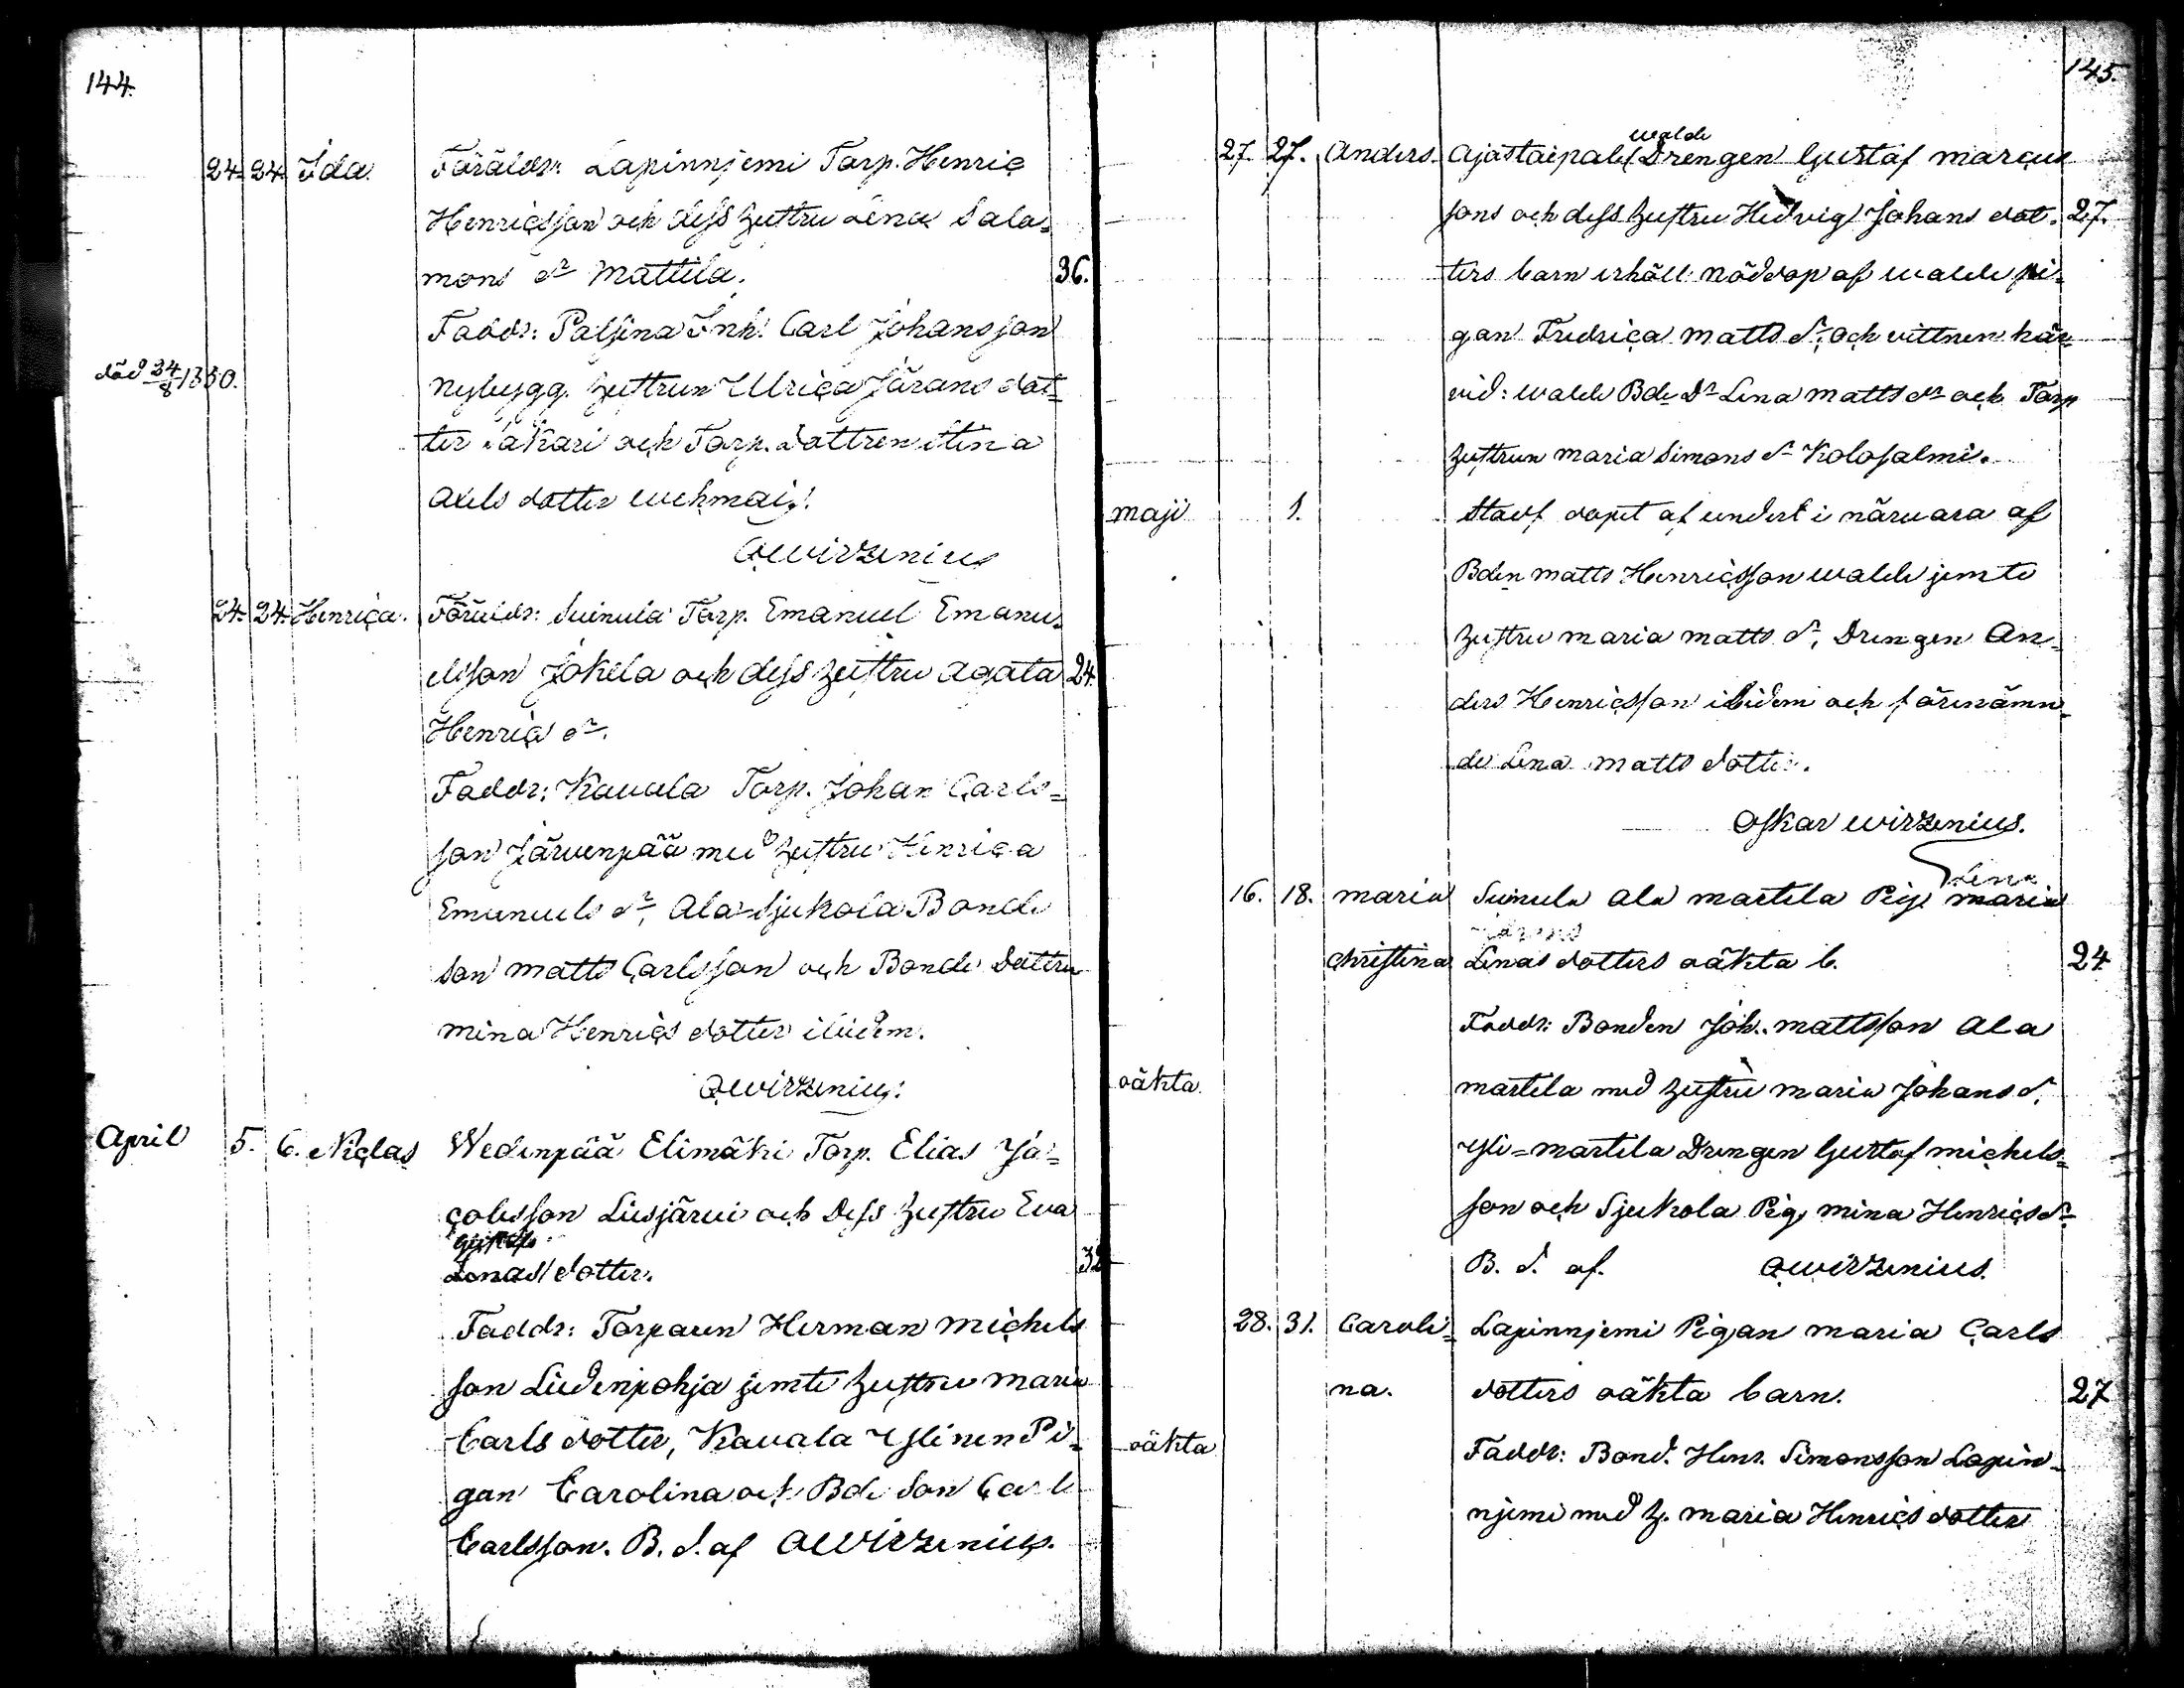 144.
24. 24. Ida. Föräldr: Lapinnjemi Torp. Henric
Henricsson och dess hustru Lena Salo-
mons dr Mattila. 36.
Faddr: Palsina Inh. Carl Johansson
död 24/8 1850.
Nybygg. hustrun Ulrica Jörans dot-
ter Sakari och Torp. dottren Stina
Axels dotter Wehmai.
OWirzenius
24. 24. Henrica. Föräldr: Suinula Torp. Emanuel Emanu-
elsson Jokela och dess hustru Agata 24.
Henrics dr.
Faddr: Kauala Torp. Johan Carls-
son Järvenpää med hustru Henrica
Emanuels dr, Ala Sjukola Bonde
Son Matts Carlsson och Bonde Dottren
Mina Henrics dotter ibidem.
OWirzenius.
April 5. 6. Niclas Wedenpää Elimäki Torp. Elias Ja-
cobsson Liesjärvi och Dess hustru Eva
Gustafs
Jonas dotter. 32
Faddr: Torparen Herman Michels
son Liedenpohja jemte hustru Maria
Carls dotter, Kauala Ylinen Pi-
gan Carolina och Bde Son Carl
Carlsson. B. d. af OWirzenius.
145.
Walde
27. 27. Anders. Ajostaipale Drengen Gustaf Marcus
sons och dess hustru Hedvig Johans dot- 27.
ters barn erhöll nöddop af Walde pi-
gan Fredrica Matts dr, och vittnen här-
vid: Walde Bde Dr Lena Matts dr och Torp
hustrun Maria Simons dr Kolosalmi.
Maji 1. Stadf. dopet af undert i närvara af
Bden Matts Henricsson Walde jemte
hustru Maria Matts dr, Drengen An-
ders Henricsson ibidem och förenämn-
de Lena Matts dotter.
Oskar Wirzenius.
Lena
16. 18. Maria Suinula Ala Martila Pig. Maria
Christina Linas dotters oäkta b. 24
Faddr: Bonden Joh. Mattsson Ala
oäkta. Martila med hustru Maria Johans d.
Yli-Martila Drengen Gustaf Michels-
son och Sjukola Pig. Mina Henrics dr
B. d. af. OWirzenius.
28. 31. Caroli- Lapinnjemi Pigan Maria Carls
na. dotters oäkta barn. 27
oäkta Faddr: Bond. Henr. Simonsson Lapin-
njemi med h. Maria Henrics dotter